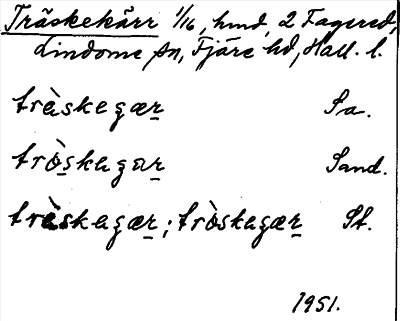 Träskekärr 1/16, hmd, 2 Fagered,
Lindome sn, Fjäre hd, Hall. l.
trὰskegær Sa.
tròskegar Sand.
trὰskegær; tròskegær St.
1951.